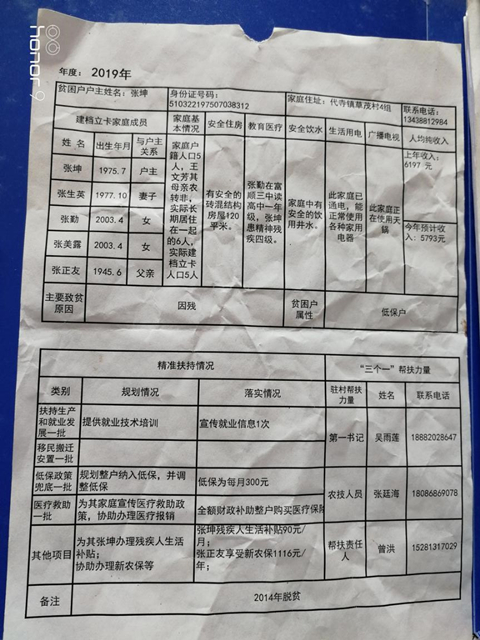 honor 9
年度: 2019年
贫困户户主姓名: 张坤
身份证号码:
510322197507038312
家庭住址: 代寺镇草茂村4组
联系电话:
13438812984
建档立卡家庭成员
家庭基
本情况
安全住房
教育医疗
安全饮水
生活用电
广播电视
人均纯收入
姓 名
出生年月
与户主
关系
张坤
1975.7
户主
张生英
1977.10
妻子
张勤
2003.4
女
张美露
2003.4
女
张正友
1945.6
父亲
家庭户
籍人口5
人, 王
文芳其
母亲农
转非,
实际长
期居住
在一起
的6人,
实际建
档立卡
人口5人
有安全的
砖混结构
房屋120
平米。
张勤在富
顺三中读
高中一年
级, 张坤
患精神残
疾四级。
家庭中有
安全的饮
用井水。
此家庭已
通电, 能
正常使用
各种家用
电器
此家庭正
在使用天
锅
上年收入:
6197 元
今年预计收
入: 5793元
主要致贫
原因
因残
贫困户
属性
低保户
精准扶持情况
“三个一”帮扶力量
类别
规划情况
落实情况
驻村帮扶
力量
姓名
联系电话
扶持生产
和就业发
展一批
提供就业技术培训
宣传就业信息1次
第一书记
吴雨莲
18882028647
移民搬迁
安置一批
低保政策
兜底一批
规划整户纳入低保, 并调
整低保
低保为每月300元
农技人员
张廷海
18086869078
医疗救助
一批
为其家庭宣传医疗救助政
策, 协助办理医疗报销
全额财政补助整户购买医疗保险
其他项目
为其张坤办理残疾人生活
补贴;
协助办理新农保等
张坤残疾人生活补贴90元/
月;
张正友享受新农保1116元/
年;
帮扶责任
人
曾洪
15281317029
备注
2014年脱贫